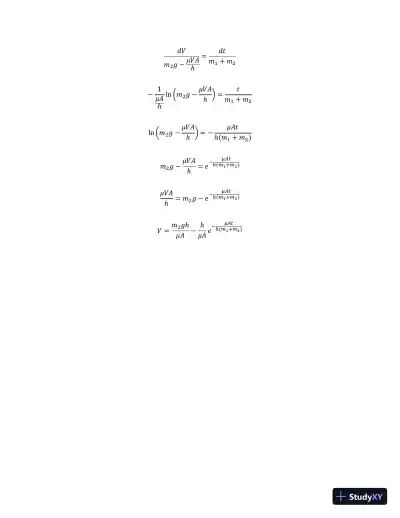 dV / (m₂g − μVA/h) = dt / (m₁ + m₂)
− 1/(μA/h) ln(m₂g − μVA/h) = t / (m₁ + m₂)
ln(m₂g − μVA/h) = − μAt / (h(m₁ + m₂))
m₂g − μVA/h = e^(− μAt / (h(m₁+m₂)))
μVA/h = m₂g − e^(− μAt / (h(m₁+m₂)))
V = m₂gh/μA − h/μA e^(− μAt / (h(m₁+m₂)))
StudyXY